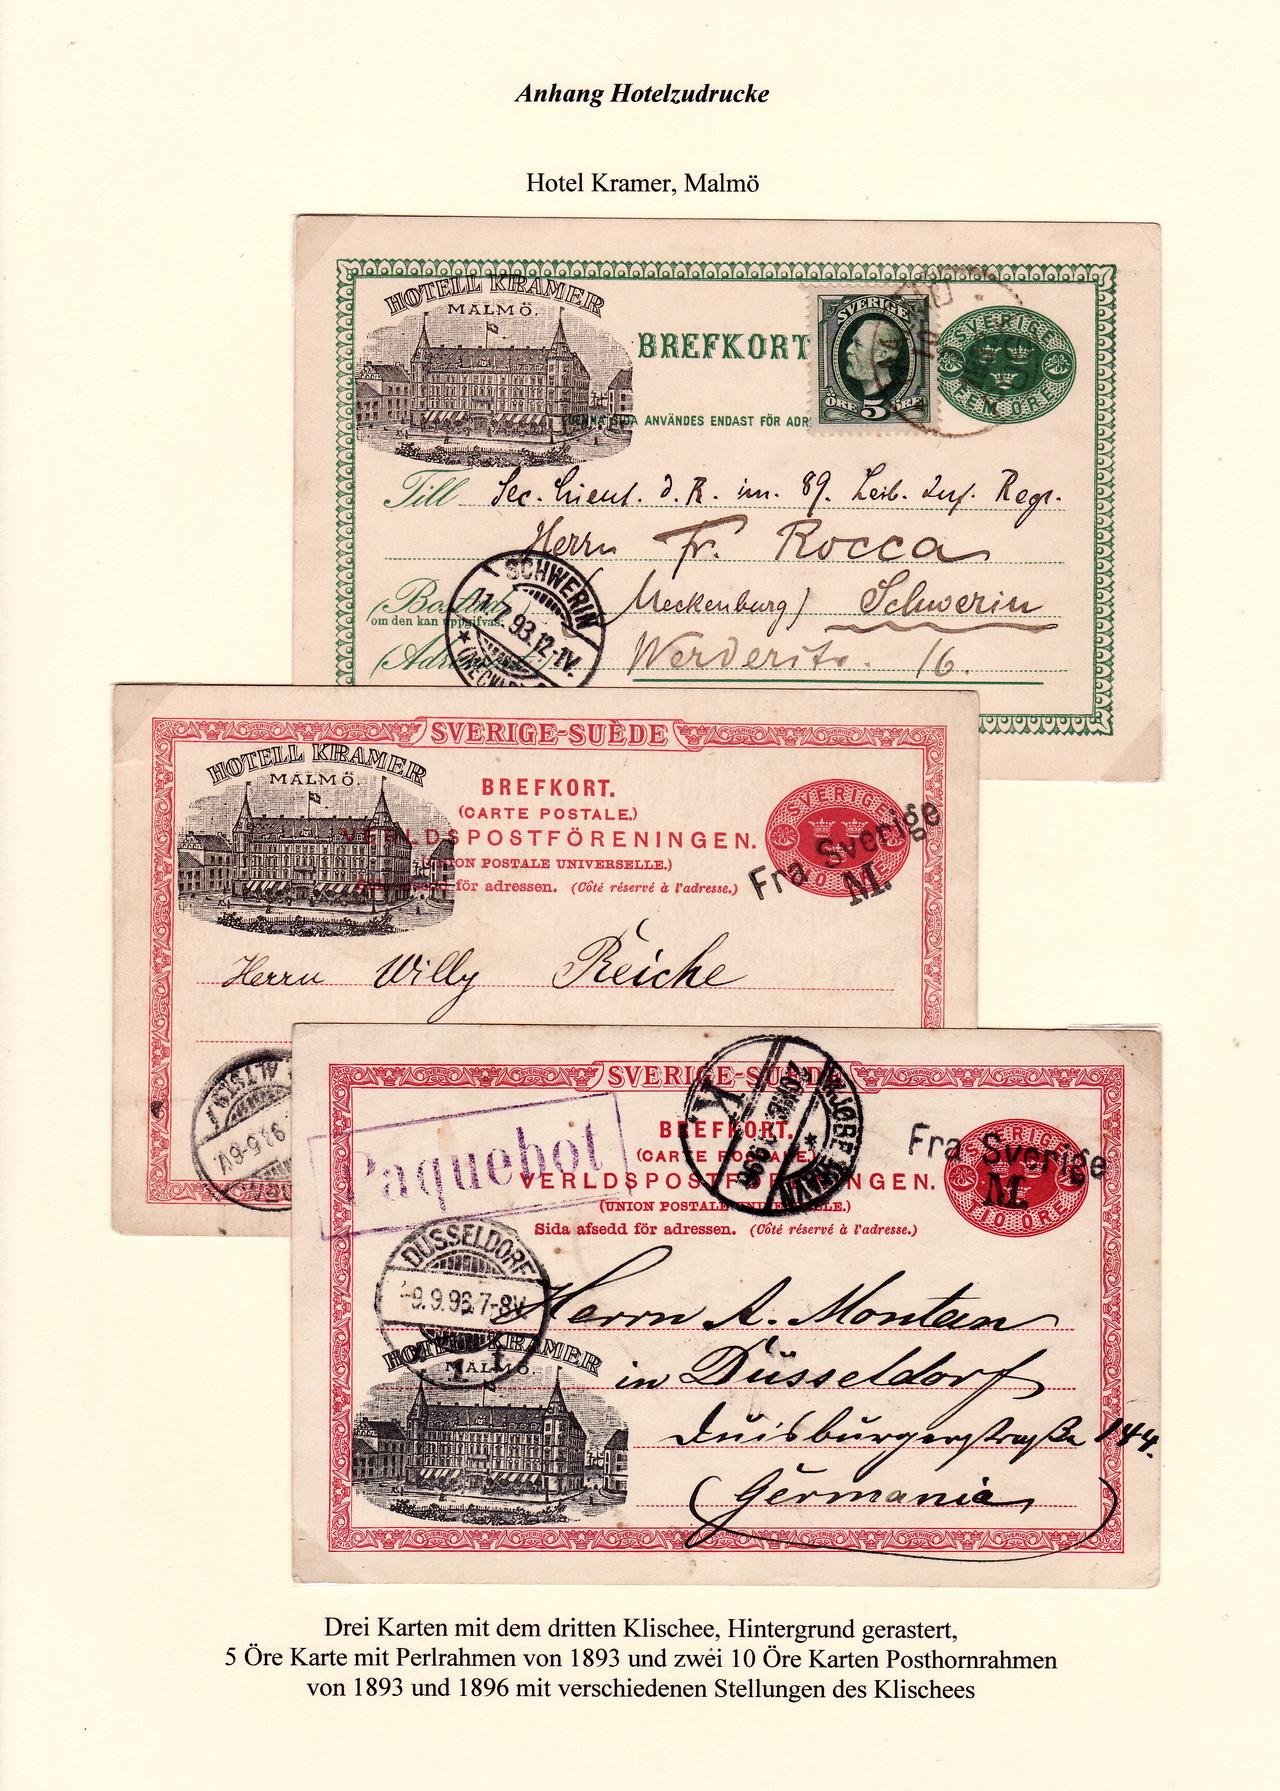 Anhang Hotelzudrucke
Hotel Kramer, Malmö
HOTELL KRAMER
MALMÖ.
BREFKORT
SVERIGE
ÖRE 5 ÖRE
SVERIGE
FEM ÖRE
SIDA ANVÄNDES ENDAST FÖR ADR
Till Sec. Lieut. d. R. im. 89. Leib. Inf. Regr.
Herrn Fr. Rocca
(Meckenburg) Schwerin
om den kan uppgifvas.
Werderstr. 16.
SCHWERIN
11.7.93.12-1V.
SVERIGE-SUÈDE
HOTELL KRAMER
MALMÖ.
BREFKORT.
(CARTE POSTALE.)
VERLDSPOSTFÖRENINGEN.
(UNION POSTALE UNIVERSELLE.)
Sida afsedd för adressen. (Côté réservé à l'adresse.)
SVERIGE
TIO ÖRE
Fra Sverige
M.
Herrn Willy Reiche
SVERIGE-SUÈDE
BREFKORT.
(CARTE POSTALE.)
VERLDSPOSTFÖRENINGEN.
(UNION POSTALE UNIVERSELLE.)
Sida afsedd för adressen. (Côté réservé à l'adresse.)
Paquebot
KJØBENHAVN
K
SVERIGE
TIO ÖRE
Fra Sverige
M.
DÜSSELDORF
-9.9.96.7-8V
1 t
HOTELL KRAMER
MALMÖ.
Herrn A. Montan
in Düsseldorf
Duisburgerstraße 144.
(Germania)
Drei Karten mit dem dritten Klischee, Hintergrund gerastert,
5 Öre Karte mit Perlrahmen von 1893 und zwei 10 Öre Karten Posthornrahmen
von 1893 und 1896 mit verschiedenen Stellungen des Klischees